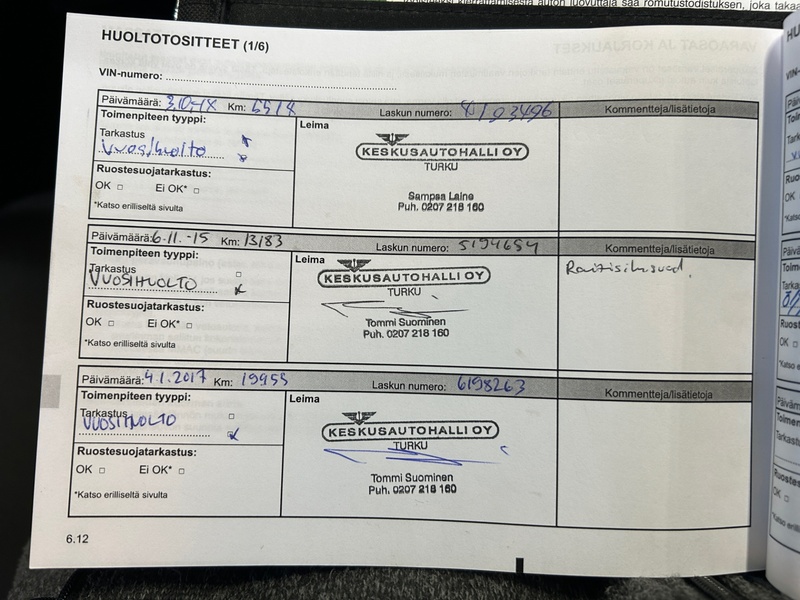 HUOLTOTOSITTEET (1/6)
VIN-numero:
Päivämäärä: Km: 6518 Laskun numero: Kommentteja/lisätietoja
Toimenpiteen tyyppi: Leima
Tarkastus
Vuosihuolto
KESKUSAUTOHALLI OY
TURKU
Ruostesuojatarkastus:
OK Ei OK*
Sampsa Laine
Puh. 0207 218 160
*Katso erilliseltä sivulta
Päivämäärä: 6-11.-15 Km: 13183 Laskun numero: 5194654 Kommentteja/lisätietoja
Toimenpiteen tyyppi: Leima
Tarkastus
VUOSIHUOLTO
KESKUSAUTOHALLI OY
TURKU
Raitisilmasuod.
Ruostesuojatarkastus:
OK Ei OK*
Tommi Suominen
Puh. 0207 218 160
*Katso erilliseltä sivulta
Päivämäärä: 4.1.2017 Km: 19955 Laskun numero: 6198263 Kommentteja/lisätietoja
Toimenpiteen tyyppi: Leima
Tarkastus
VUOSIHUOLTO
KESKUSAUTOHALLI OY
TURKU
Ruostesuojatarkastus:
OK Ei OK*
Tommi Suominen
Puh. 0207 218 160
*Katso erilliseltä sivulta
6.12